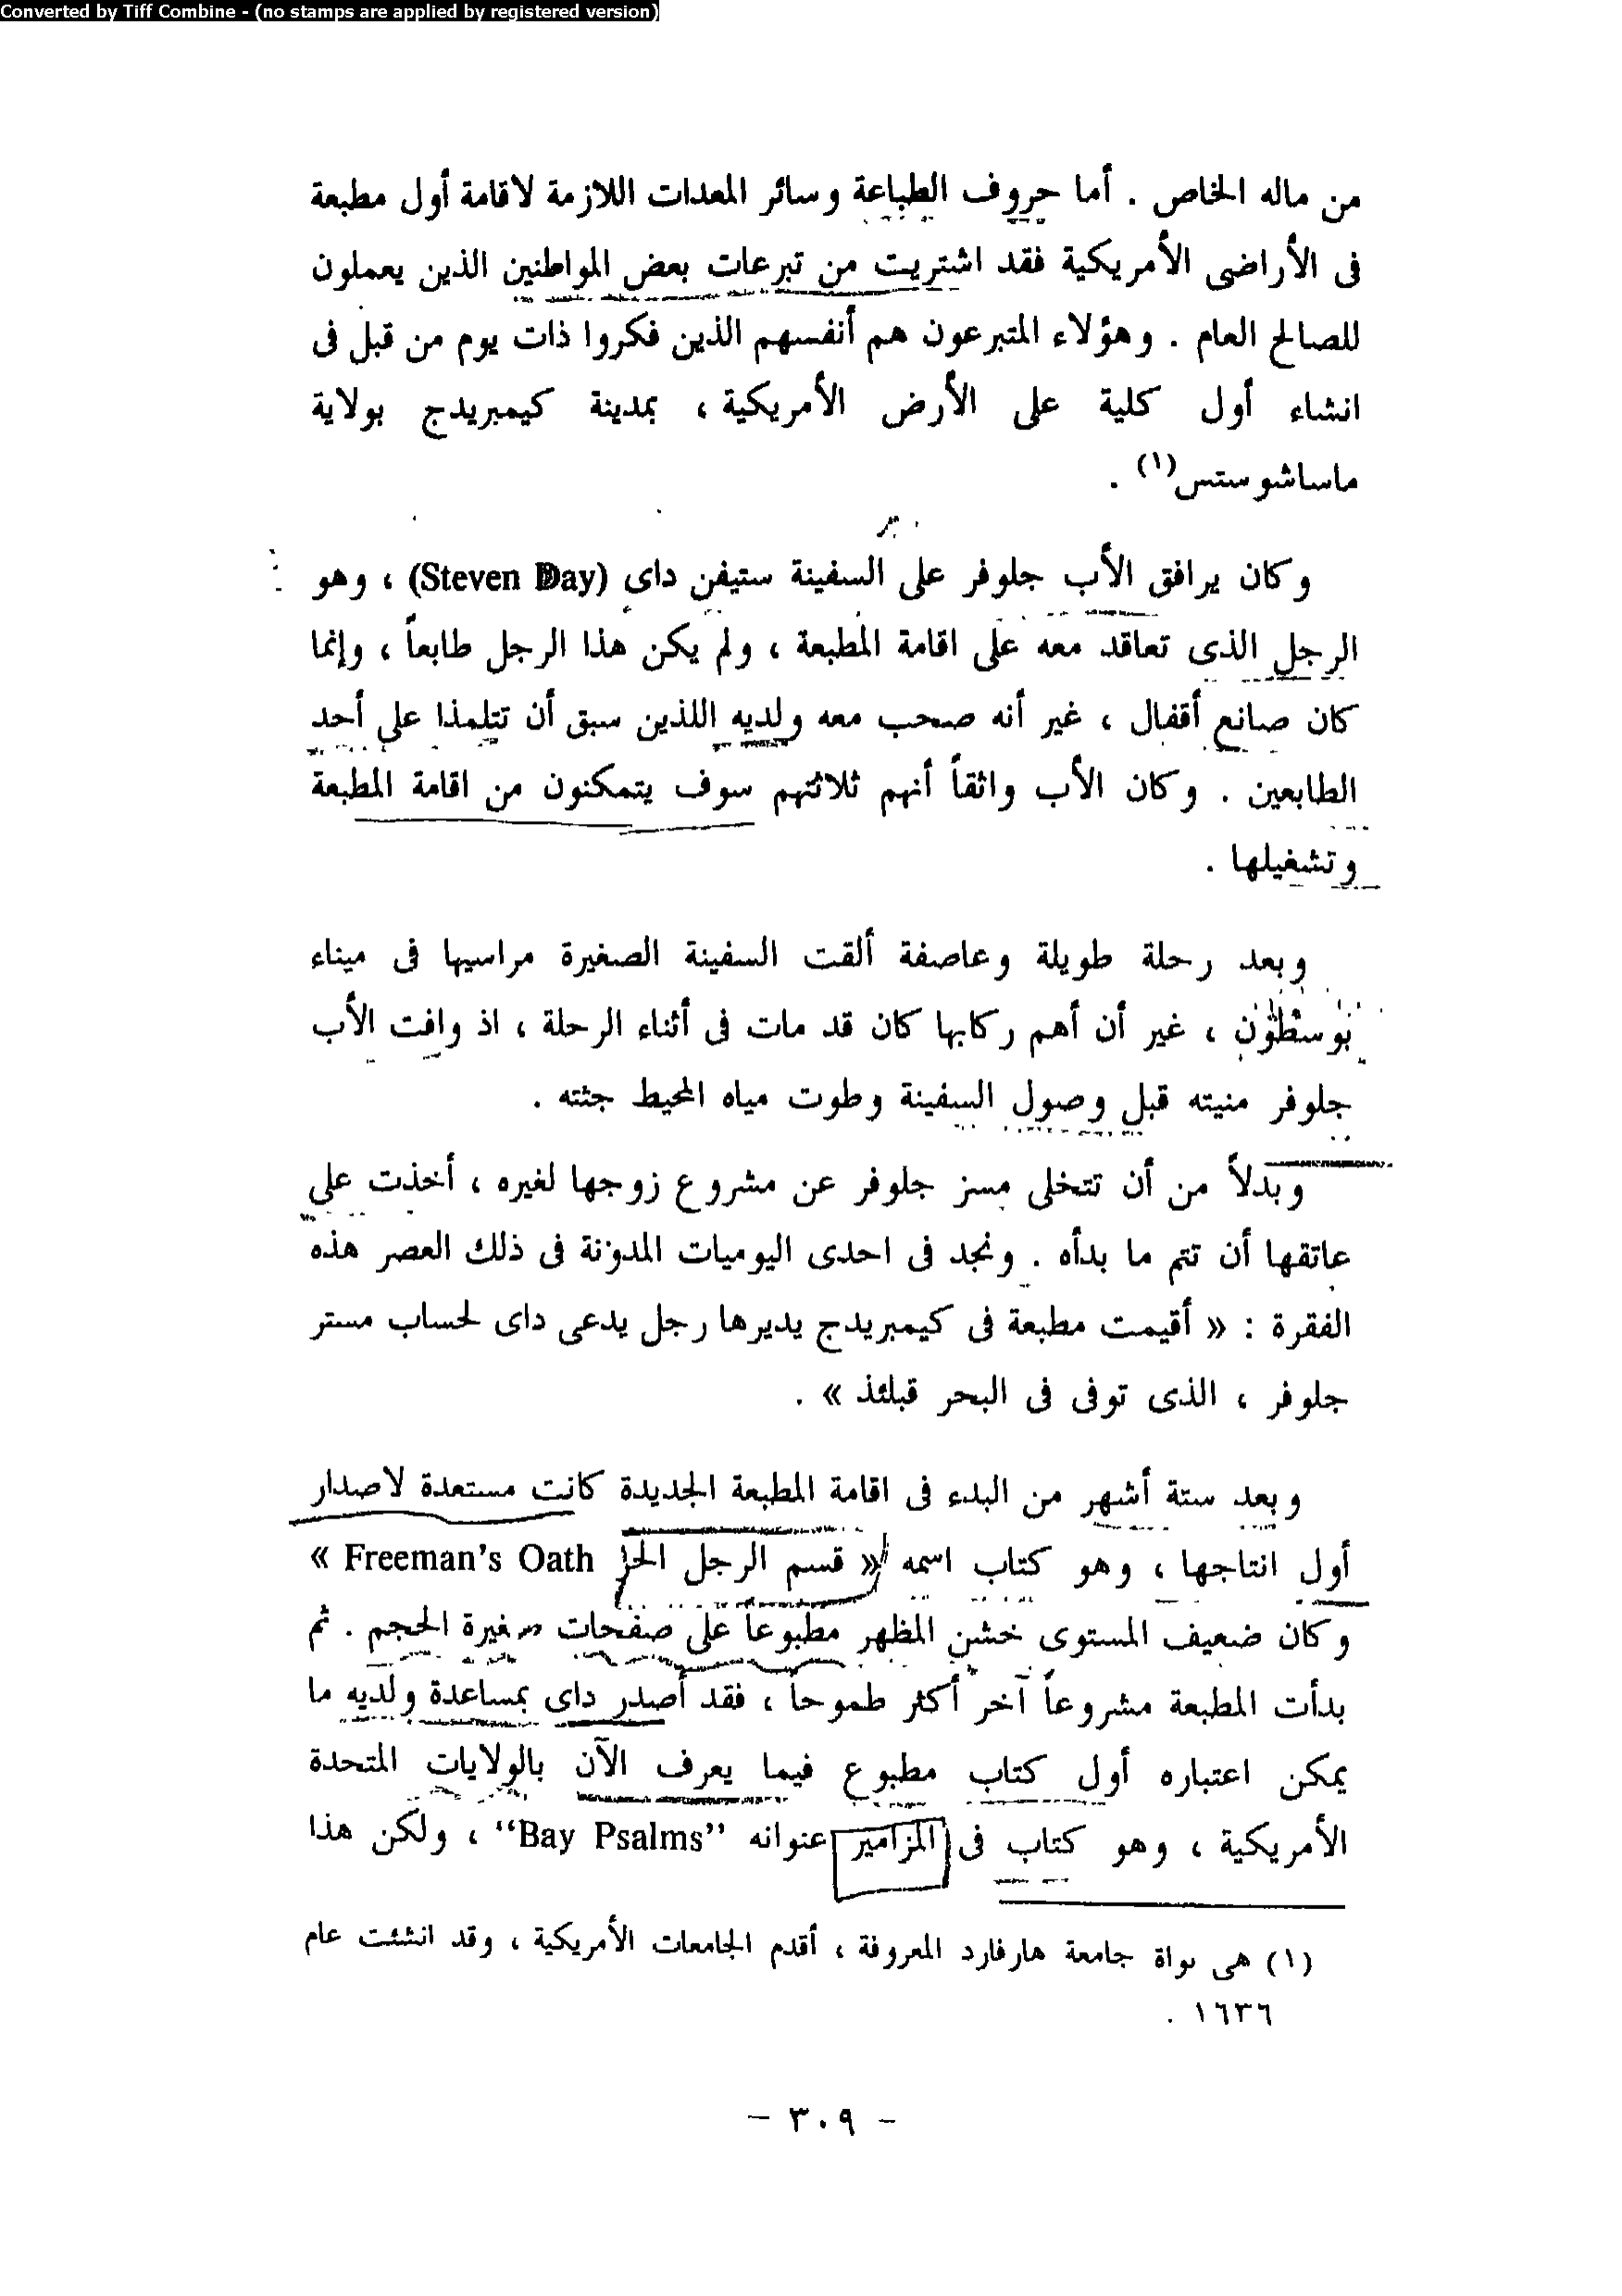 Converted by Tiff Combine - (no stamps are applied by registered version)
من ماله الخاص . أما حروف الطباعة وسائر المعدات اللازمة لاقامة أول مطبعة
فى الأراضى الأمريكية فقد اشتريت من تبرعات بعض المواطنين الذين يعملون
للصالح العام . وهؤلاء المتبرعون هم أنفسهم الذين فكروا ذات يوم من قبل فى
انشاء أول كلية على الأرض الأمريكية ، بمدينة كيمبريدج بولاية
ماساشوستس(١) .
وكان يرافق الأب جلوفر على السفينة ستيفن داى (Steven Day) ، وهو
الرجل الذى تعاقد معه على اقامة المطبعة ، ولم يكن هذا الرجل طابعاً ، وإنما
كان صانع أقفال ، غير أنه صحب معه ولديه اللذين سبق أن تتلمذا على أحد
الطابعين . وكان الأب واثقاً أنهم ثلاثتهم سوف يتمكنون من اقامة المطبعة
وتشغيلها .
وبعد رحلة طويلة وعاصفة ألقت السفينة الصغيرة مراسيها فى ميناء
بوسطون ، غير أن أهم ركابها كان قد مات فى أثناء الرحلة ، اذ وافت الأب
جلوفر منيته قبل وصول السفينة وطوت مياه المحيط جثته .
وبدلاً من أن تتخلى مسز جلوفر عن مشروع زوجها لغيره ، أخذت على
عاتقها أن تتم ما بدأه . ونجد فى احدى اليوميات المدونة فى ذلك العصر هذه
الفقرة : « أقيمت مطبعة فى كيمبريدج يديرها رجل يدعى داى لحساب مستر
جلوفر ، الذى توفى فى البحر قبلئذ » .
وبعد ستة أشهر من البدء فى اقامة المطبعة الجديدة كانت مستعدة لاصدار
أول انتاجها ، وهو كتاب اسمه « قسم الرجل الحر Freeman's Oath »
وكان ضعيف المستوى خشن المظهر مطبوعاً على صفحات صغيرة الحجم . ثم
بدأت المطبعة مشروعاً آخر أكثر طموحاً ، فقد أصدر داى بمساعدة ولديه ما
يمكن اعتباره أول كتاب مطبوع فيما يعرف الآن بالولايات المتحدة
الأمريكية ، وهو كتاب فى المزامير عنوانه "Bay Psalms" ، ولكن هذا
(١) هى نواة جامعة هارفارد المعروفة ، أقدم الجامعات الأمريكية ، وقد انشئت عام
١٦٣٦ .
– ٣٠٩ –